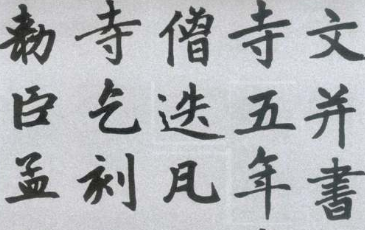 文并書
寺五年
僧迭凡
寺乞刻
勅臣孟